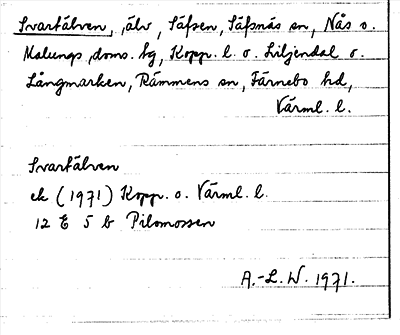 Svartälven, älv, Säfsen, Säfsnäs sn, Nås o.
Malungs doms. hg, Kopp. l. o. Liljendal o.
Långmarken, Rämmens sn, Färnebo hd,
Värml. l.
Svartälven
ek (1971) Kopp. o. Värml. l.
12 E 5 b Pilomossen
A.-L. W. 1971.